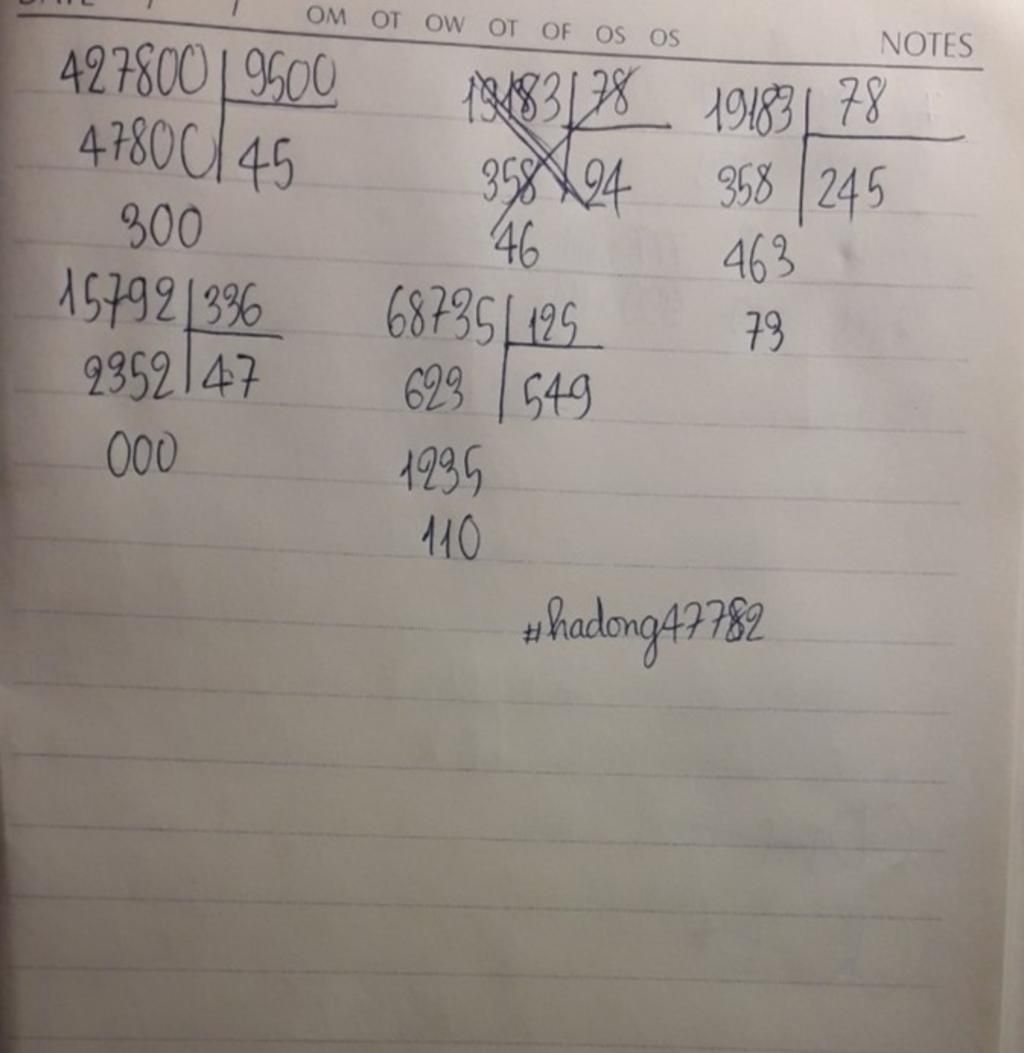 OM OT OW OT OF OS OS NOTES
427800 9500
47800 45
300
19183 78
358 24
46
19183 78
358 245
463
73
15792 336
2352 47
000
68735 125
623 549
1235
110
#hadong47782